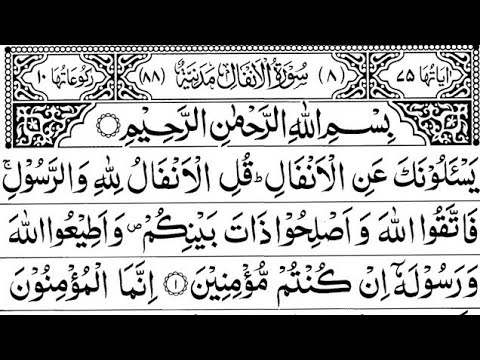 اٰیَاتُهَا ۷۵ (۸) سُوْرَةُ الْاَنْفَالِ مَدَنِیَّةٌ (۸۸) رُكُوْعَاتُهَا ۱۰
بِسْمِ اللّٰهِ الرَّحْمٰنِ الرَّحِیْمِ
یَسْـَٔلُوْنَكَ عَنِ الْاَنْفَالِ ؕ قُلِ الْاَنْفَالُ لِلّٰهِ وَالرَّسُوْلِ ۚ
فَاتَّقُوا اللّٰهَ وَاَصْلِحُوْا ذَاتَ بَیْنِكُمْ ۪ وَاَطِیْعُوا اللّٰهَ
وَرَسُوْلَهٗۤ اِنْ كُنْتُمْ مُّؤْمِنِیْنَ ۝۱ اِنَّمَا الْمُؤْمِنُوْنَ